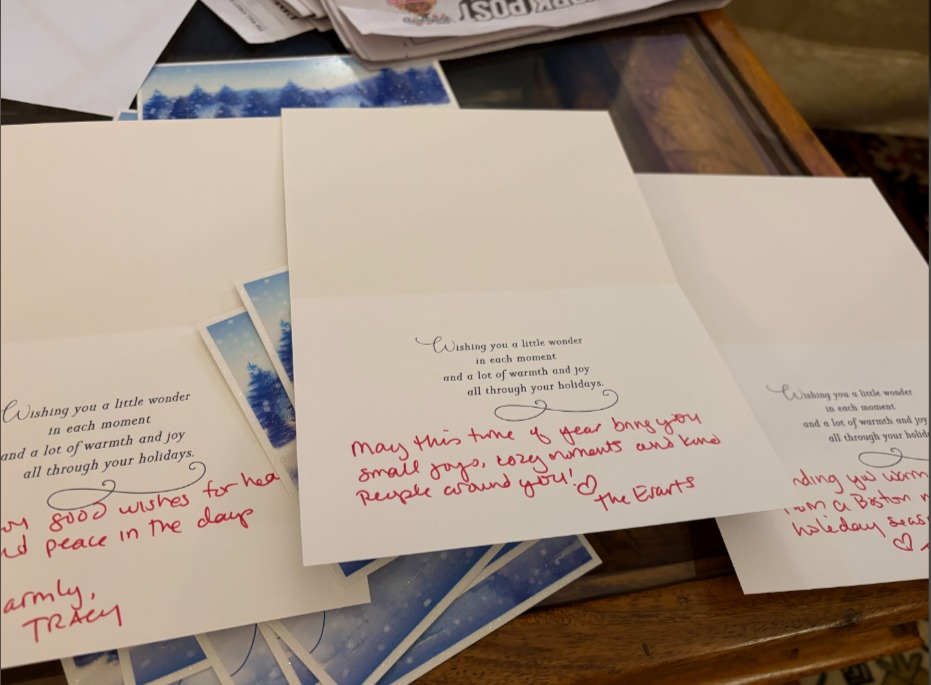 RK POST
Wishing you a little wonder
in each moment
and a lot of warmth and joy
all through your holidays.
good wishes for hea
nd peace in the days
armly,
TRACY
Wishing you a little wonder
in each moment
and a lot of warmth and joy
all through your holidays.
May this time of year bring you
small joys, cozy moments and kind
people around you! ♡
The Evarts
Wishing you a little wonder
in each moment
and a lot of warmth and joy
all through your holid
nding you warm
from a Boston
holiday seas
♡